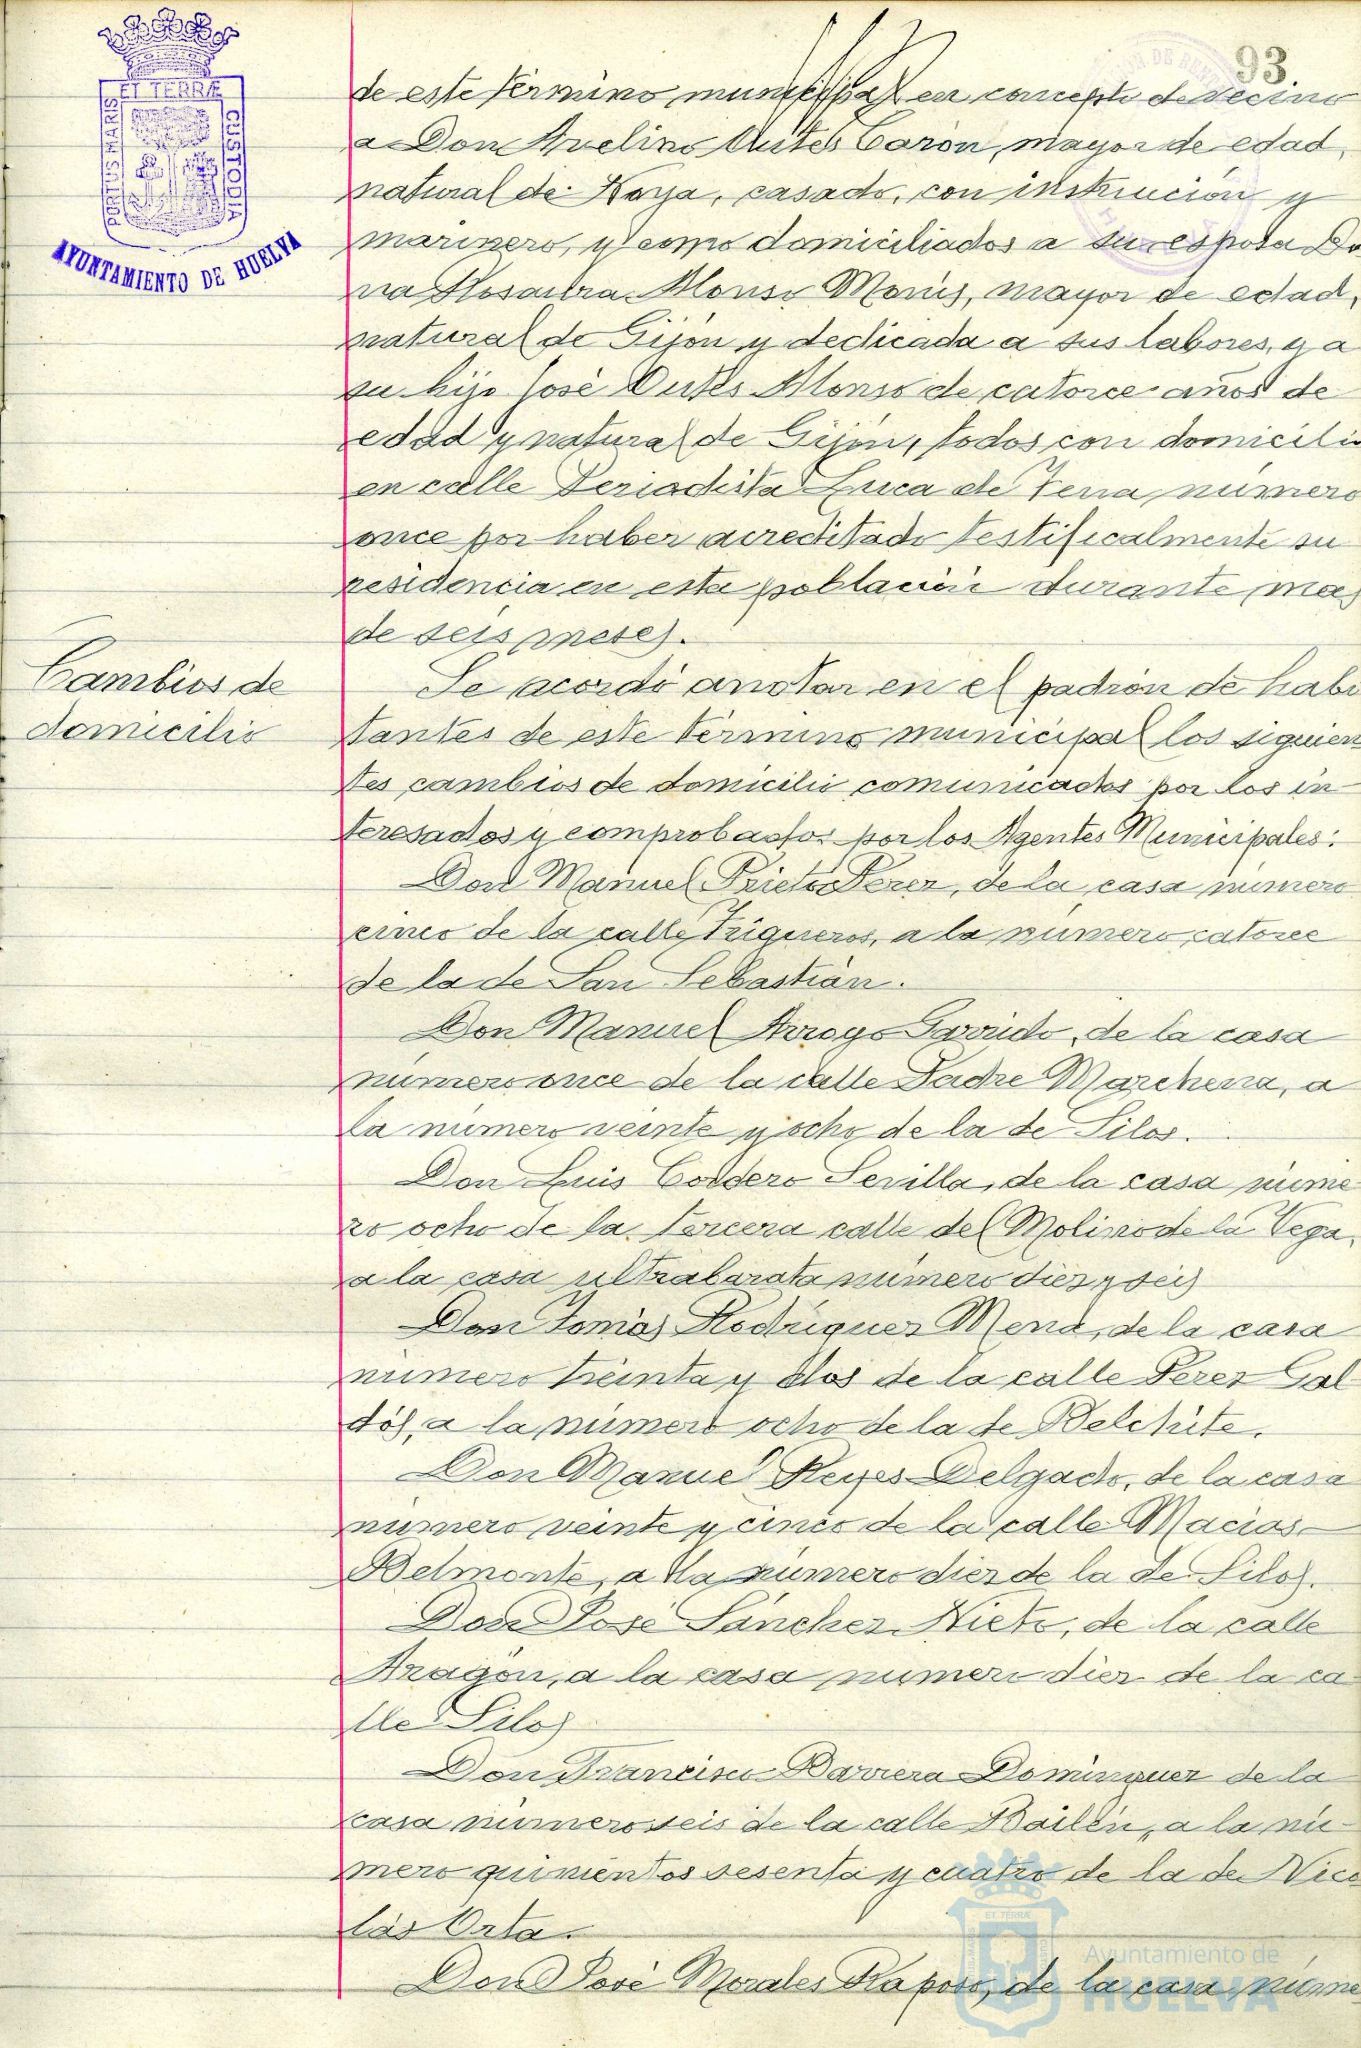 93
ET TERRÆ
PORTUS MARIS
CUSTODIA
AYUNTAMIENTO DE HUELVA
de este término municipal en concepto de vecino
a Don Avelino Autés Carón, mayor de edad,
natural de Noya, casado, con instrucción y
marinero, y como domiciliados a su esposa Do
ña Rosaura Alonso, mayor de edad,
natural de Gijón y dedicada a sus labores, y a
su hijo José Autés Alonso de catorce años de
edad y natural de Gijón, todos con domicilio
en calle Periodista Luca de Tena, número
once por haber acreditado testificalmente su
residencia en esta población durante mas
de seis meses.
Cambios de
domicilio
Se acordó anotar en el padrón de habi
tantes de este término municipal los siguien
tes cambios de domicilio comunicados por los in
teresados y comprobados por los Agentes Municipales:
Don Manuel Prieto Perez, de la casa número
cinco de la calle Trigueros, a la número catorce
de la de San Sebastián.
Don Manuel Arroyo Garrido, de la casa
número once de la calle Padre Marchena, a
la número veinte y ocho de la de Silos.
Don Luis Cordero Sevilla, de la casa núme
ro ocho de la tercera calle del Molino de la Vega,
a la casa ultrabarata número diez y seis
Don Tomás Rodríguez Mena, de la casa
número treinta y dos de la calle Perez Gal
dós, a la número ocho de la de Belchite.
Don Manuel Reyes Delgado, de la casa
número veinte y cinco de la calle Macias
Belmonte, a la número diez de la de Silos.
Don José Sánchez Nieto, de la calle
Aragón, a la casa número diez de la ca
lle Silos
Don Francisco Barrera Dominguez de la
casa número seis de la calle Bailén, a la nú-
mero quinientos sesenta y cuatro de la de Nico
lás Orta.
Don José Morales Raposo, de la casa núme
Ayuntamiento de
HUELVA